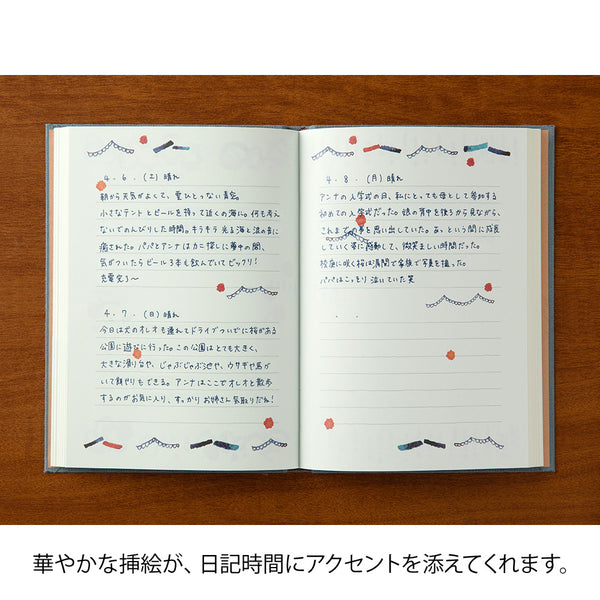 4.6.(土)晴れ
朝から天気がよくて、雲ひとつない青空。
小さなテントとビールを持って近くの海に。何も考え
ないでのんびりした時間。キラキラ光る海と波の音に
癒された。パパとアンナはカニ探しに夢中の間、
気がついたらビール3本も飲んでいてビックリ!
充電完了〜
4.7.(日)晴れ
今日は犬のオレオも連れてドライブついでに桜がある
公園に遊びに行った。この公園はとても大きく、
大きな滑り台や、じゃぶじゃぶ池や、ウサギや馬が
いて餌やりもできる。アンナはここでオレオと散歩
するのがお気に入り、すっかりお姉さん気取りだね!
4.8.(月)晴れ
アンナの入学式の日、私にとっても母として参加する
初めての入学式だった。娘の背中を後ろから見ながら、
これまでの事を思い出していた。あっという間に成長
していく姿に感動して、微笑ましい時間だった。
校庭に咲く桜は満開で家族で写真を撮った。
パパはこっそり泣いていた笑
華やかな挿絵が、日記時間にアクセントを添えてくれます。